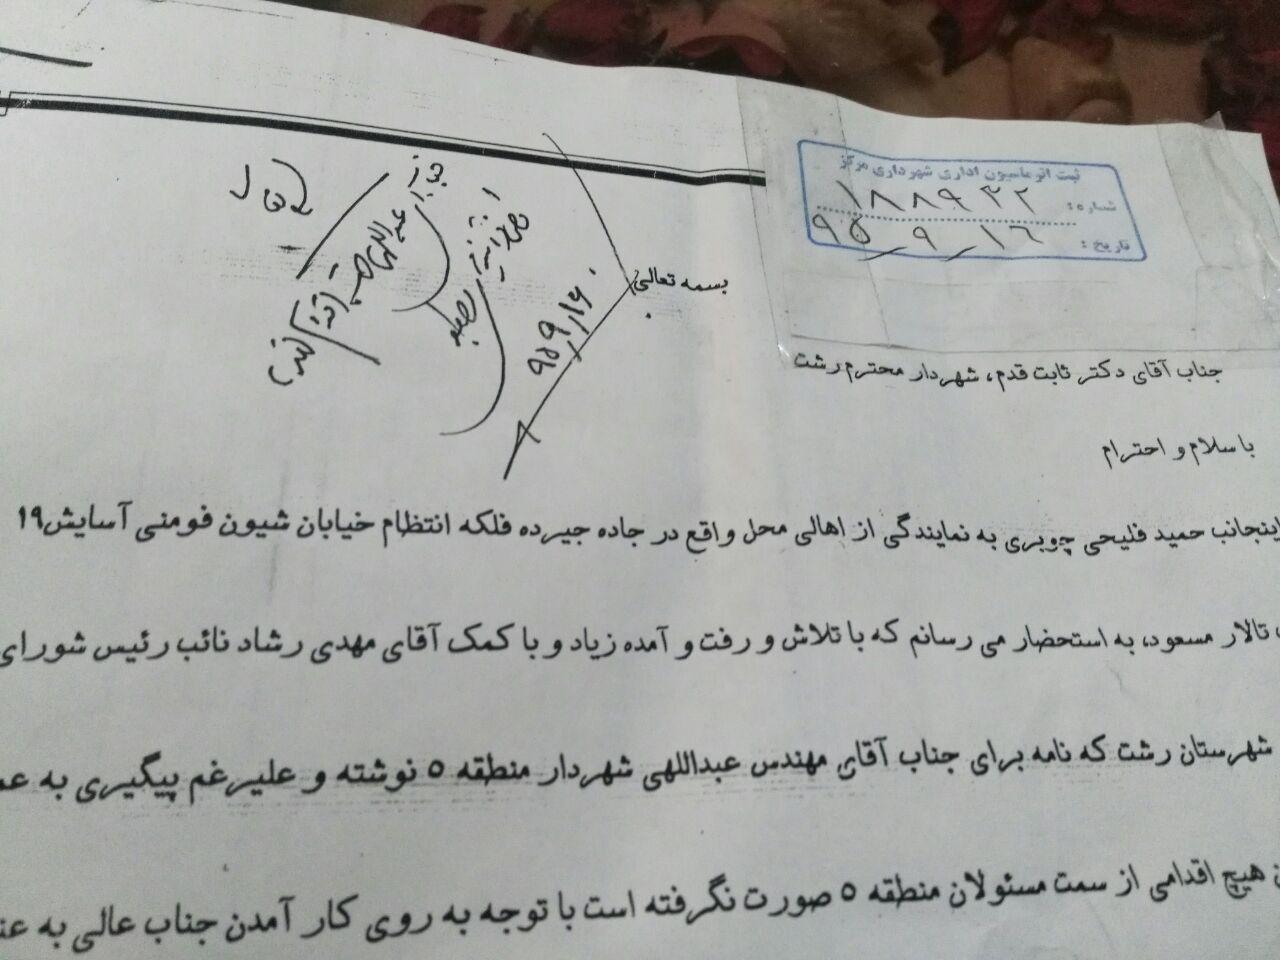 ثبت اتوماسیون اداری شهرداری مرکز
شماره: ۱۸۸۹۳۲
تاریخ: ۹۵-۹-۱۶
بسمه تعالی
۹۵,۹,۱۶
جناب آقای دکتر ثابت قدم، شهردار محترم رشت
با سلام و احترام
اینجانب حمید فلیحی چوبری به نمایندگی از اهالی محل واقع در جاده جیرده فلکه انتظام خیابان شیون فومنی آسایش۱۹
تالار مسعود، به استحضار می رسانم که با تلاش و رفت و آمده زیاد و با کمک آقای مهدی رشاد نائب رئیس شورای
شهرستان رشت که نامه برای جناب آقای مهندس عبداللهی شهردار منطقه ۵ نوشته و علیرغم پیگیری به
هیچ اقدامی از سمت مسئولان منطقه ۵ صورت نگرفته است با توجه به روی کار آمدن جناب عالی به